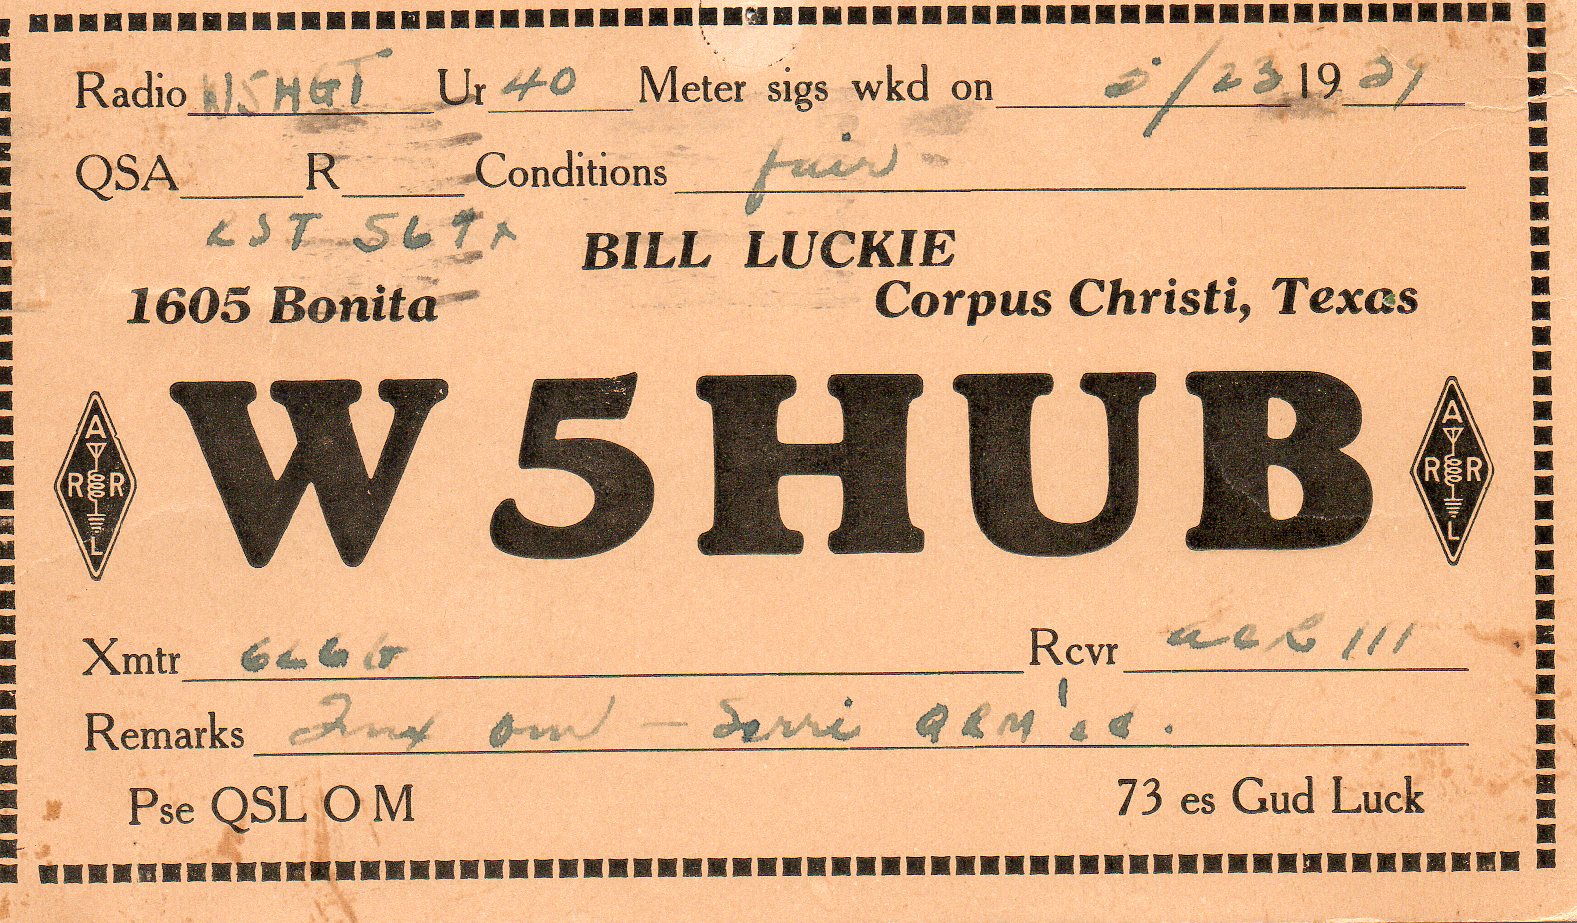 Radio W5HGT Ur 40 Meter sigs wkd on /23 19
QSA R Conditions fair
RST 569x
BILL LUCKIE
1605 Bonita Corpus Christi, Texas
W5HUB
ARRL
ARRL
Xmtr 6L6G Rcvr ACR 111
Remarks Tnx om - Sorri QRM'ed.
Pse QSL OM 73 es Gud Luck